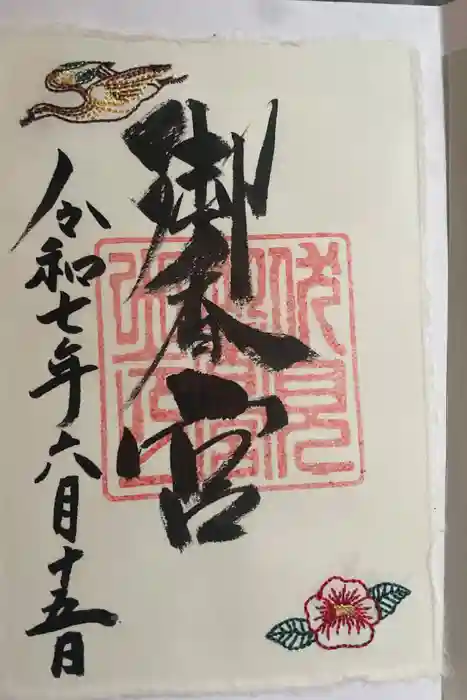 御香宮
令和七年六月十五日